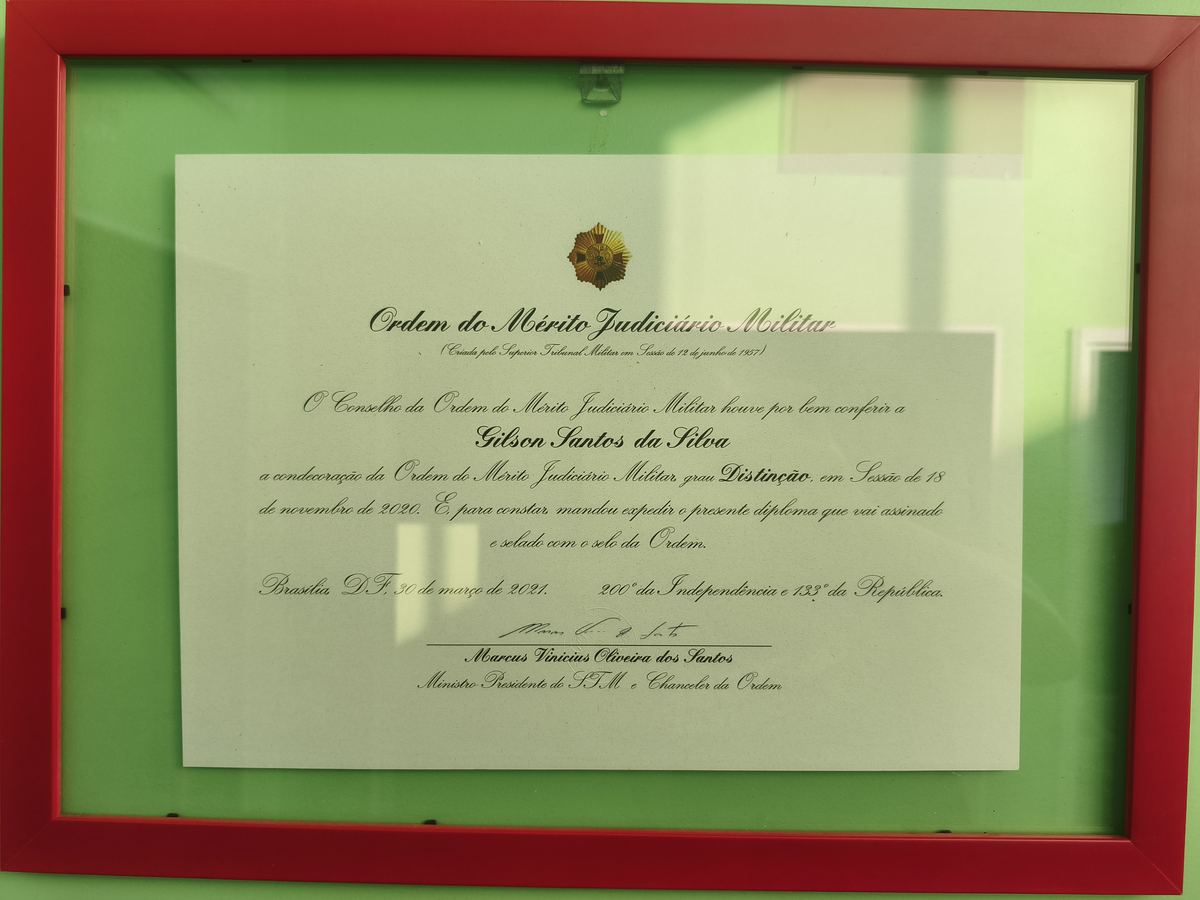 Ordem do Mérito Judiciário Militar
(Criada pelo Superior Tribunal Militar em Sessão de 12 de junho de 1957)
O Conselho da Ordem do Mérito Judiciário Militar houve por bem conferir a
Gilson Santos da Silva
a condecoração da Ordem do Mérito Judiciário Militar, grau Distinção, em Sessão de 18
de novembro de 2020. E, para constar, mandou expedir o presente diploma que vai assinado
e selado com o selo da Ordem.
Brasília, D.F., 30 de março de 2021. 200º da Independência e 133º da República.
Marcus Vinicius Oliveira dos Santos
Ministro-Presidente do STM e Chanceler da Ordem